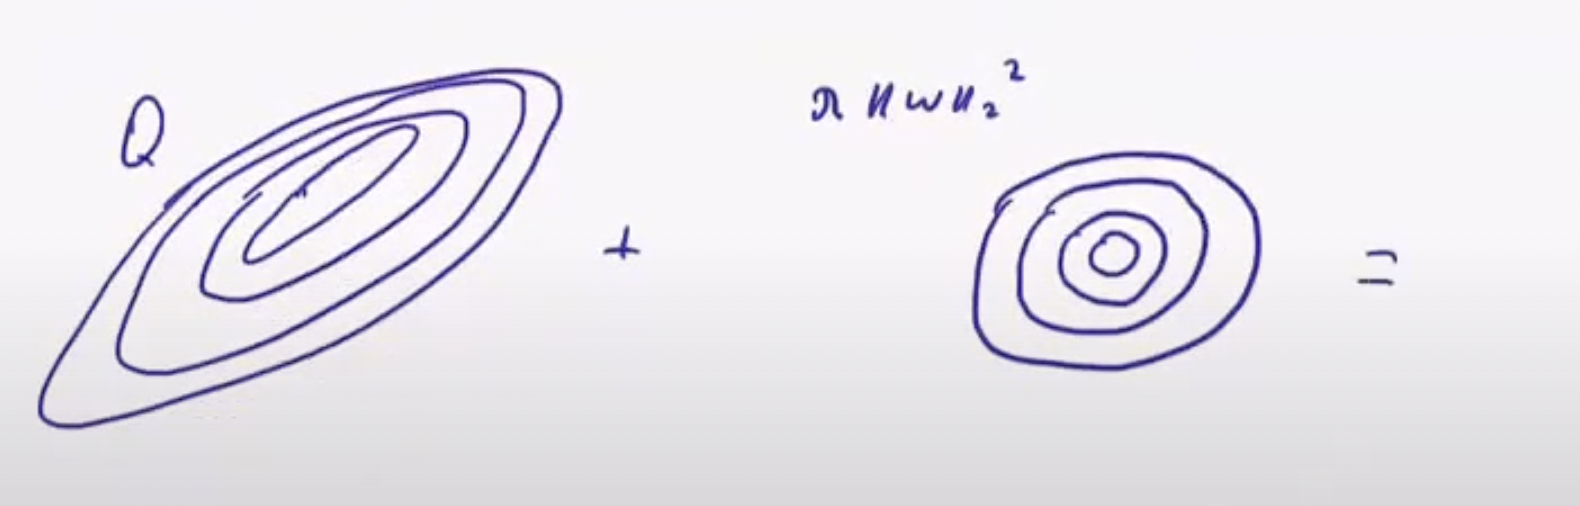 Q
λ ||w||₂²
+ =